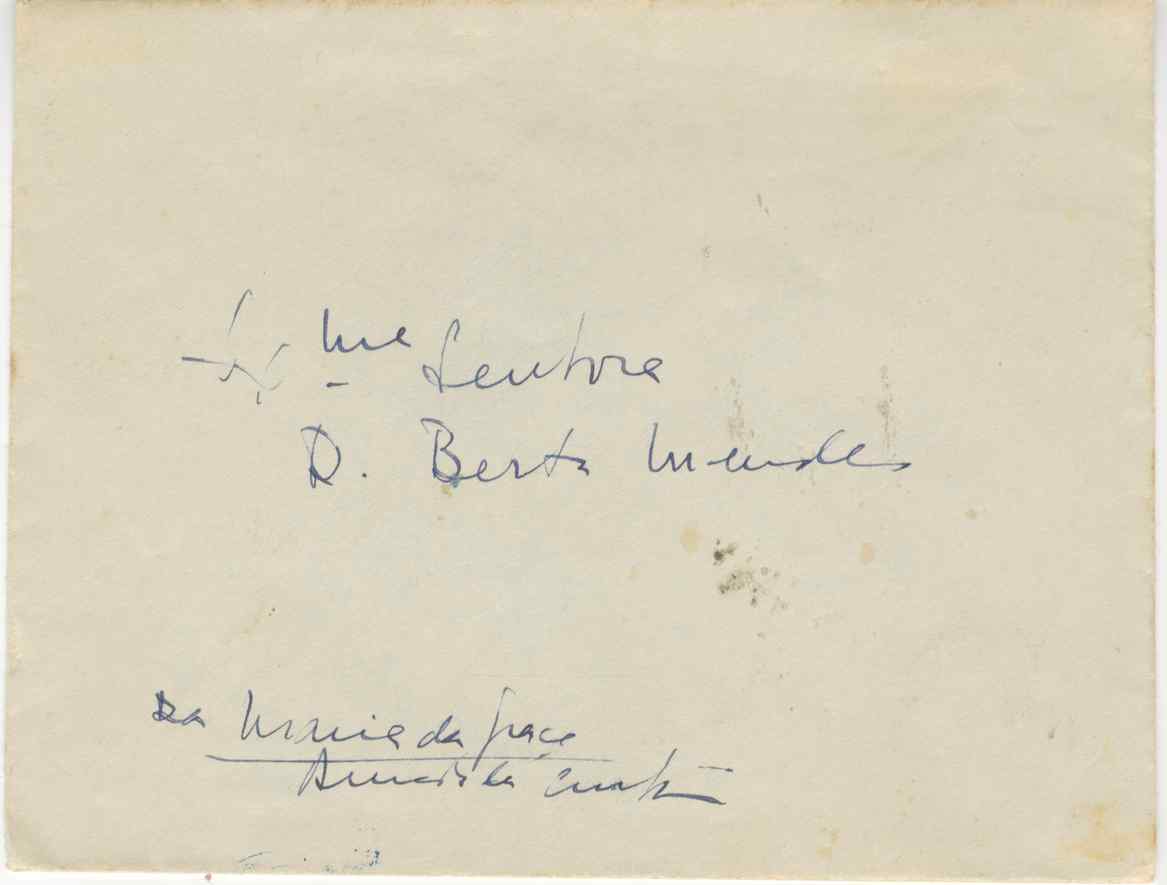 Exma Senhora
D. Berta Mendes
Da Maria da Graça
Amado da Cunha